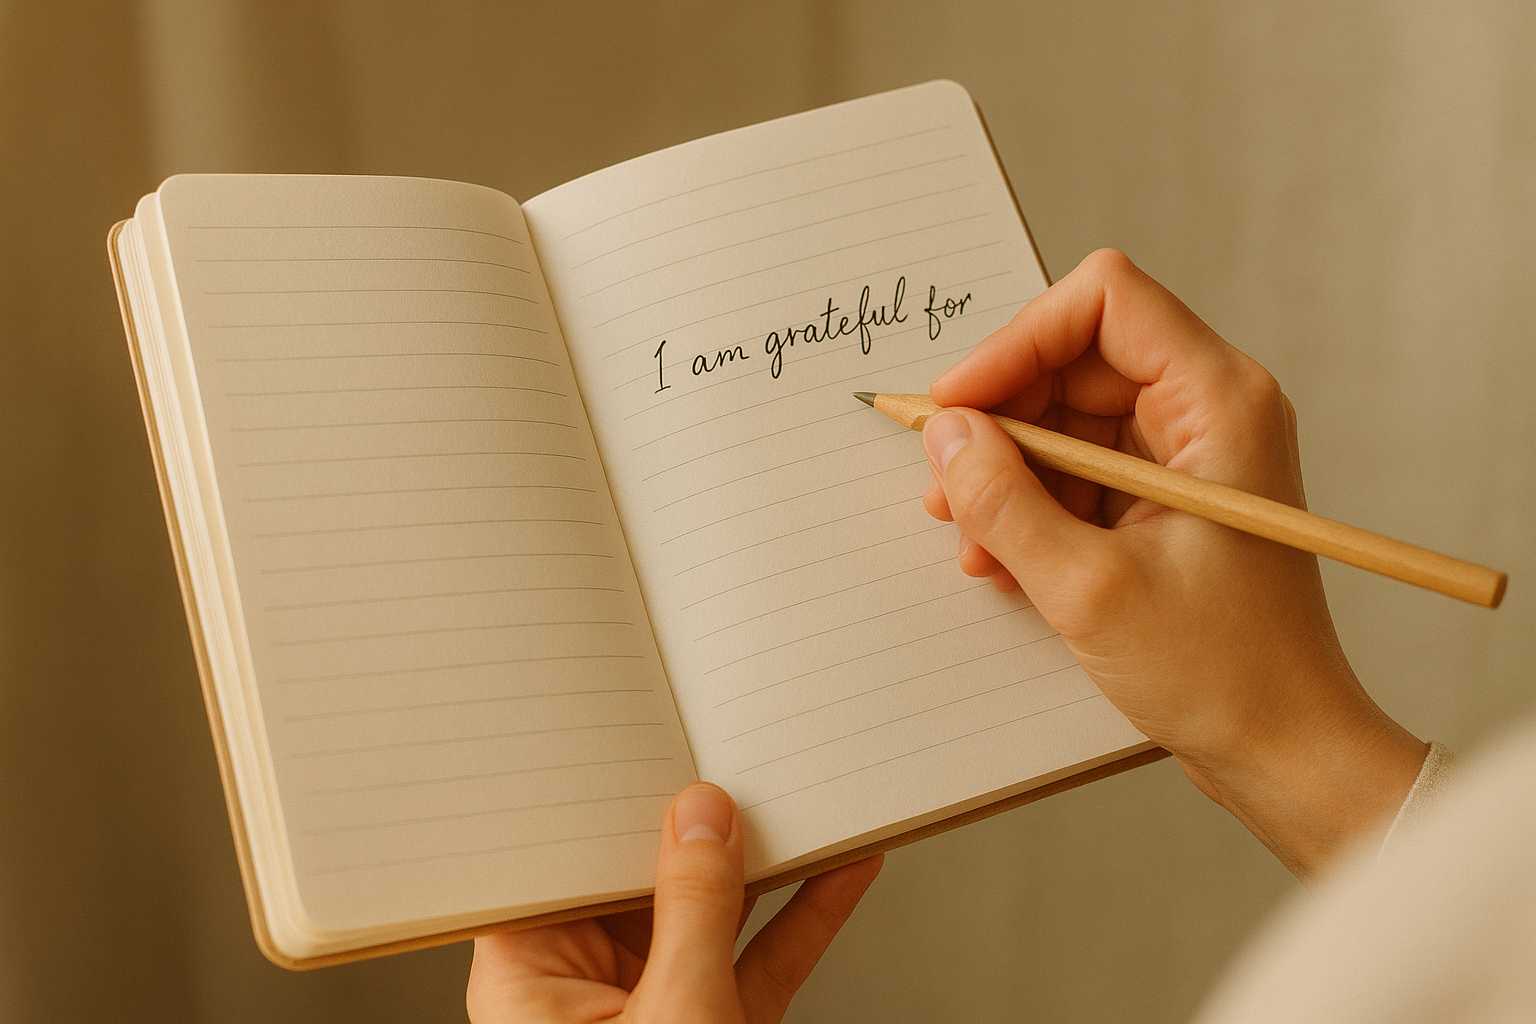 I am grateful for